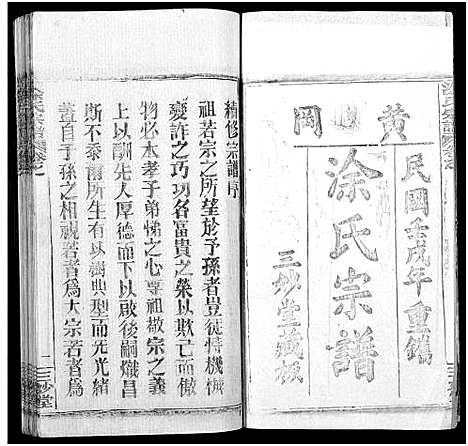 黄岡
民國壬戌年重鐫
涂氏宗譜
三妙堂藏板
續修宗譜序
祖若宗之所望於予孫者豈徒恃機械
變詐之巧功名富貴之榮以欺亡而傲
物必本孝子弟悌之心尊祖敬宗之義
上以酬先人厚德下以啟後嗣熾昌
斯不忝爾所生有以樹典型而光光緒
蓋自子孫之相視若者為大宗若者為
涂氏宗譜
一
三妙堂